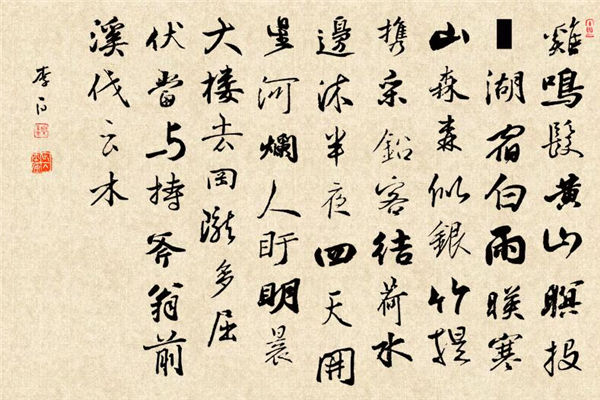 雞鳴髮黄山瞑投
湖宿白雨暎寒
山森森似銀竹提
携采鉛客結荷水
邊沐半夜四天開
星河爛人盱明晨
大樓去岡隴多屈
伏當与持斧翁前
溪伐云木
李白